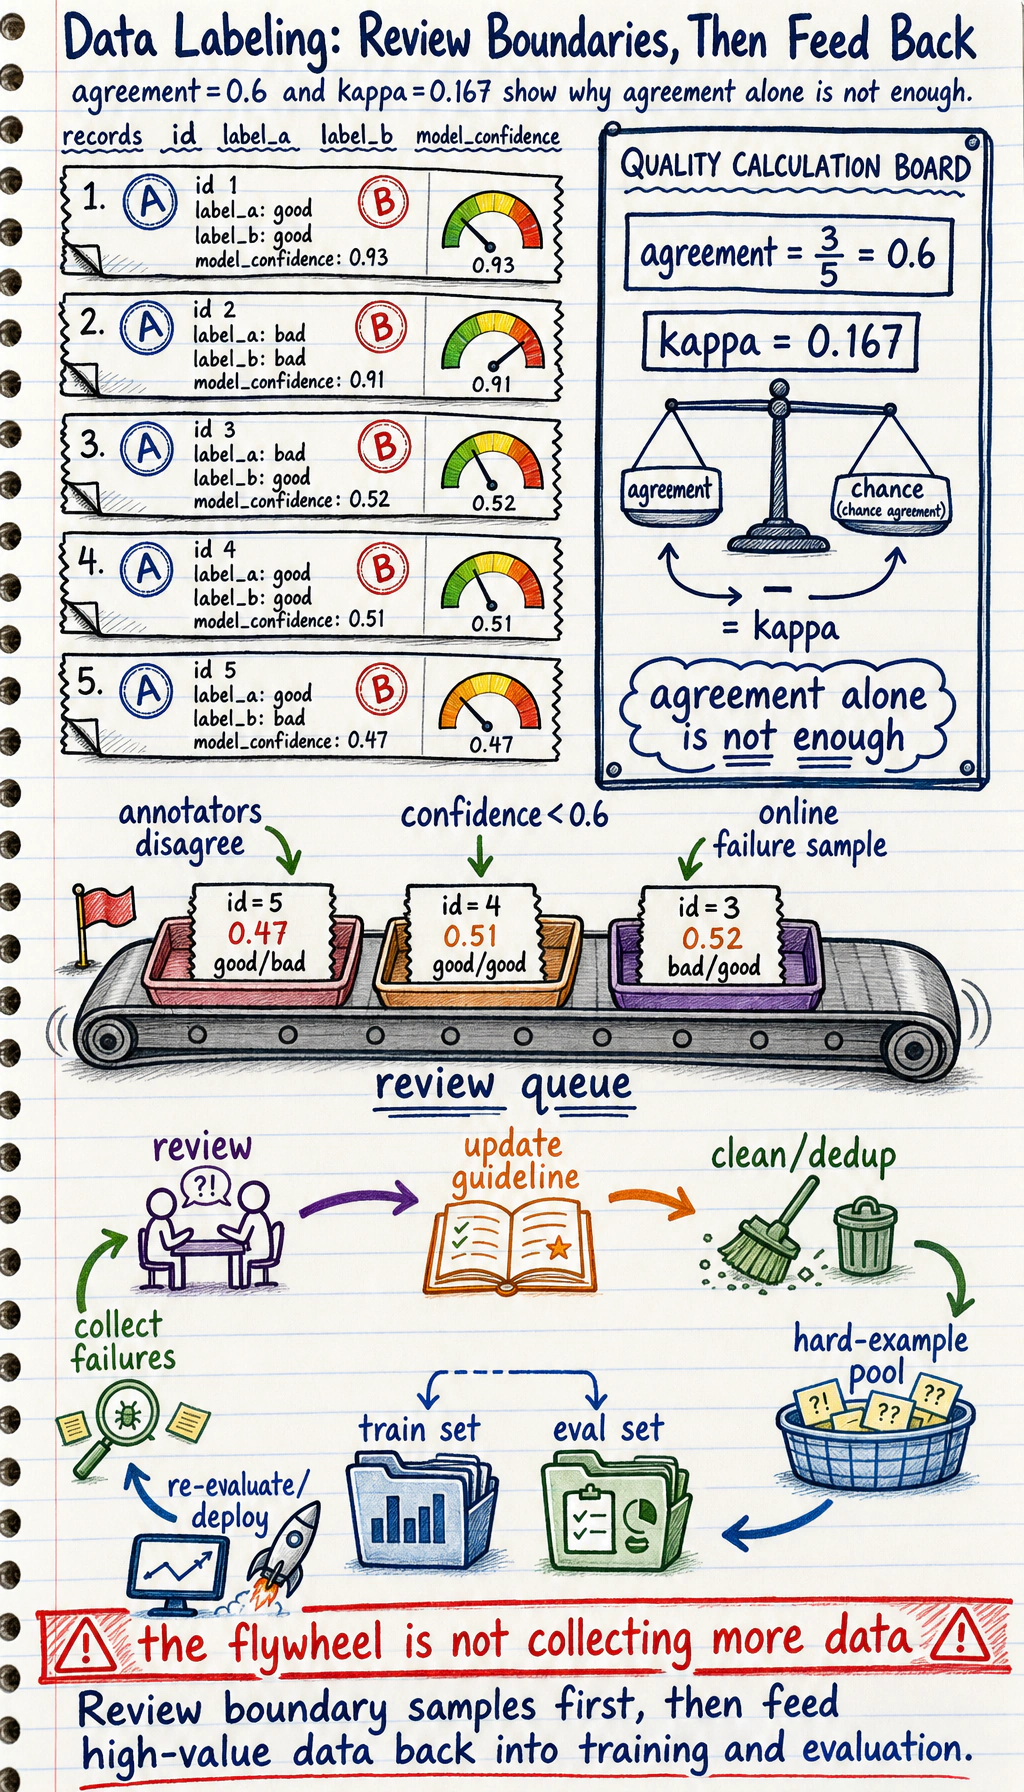 Data Labeling: Review Boundaries, Then Feed Back
agreement = 0.6 and kappa = 0.167 show why agreement alone is not enough.
records id label_a label_b model_confidence
1. A B
id 1
label_a: good
label_b: good
model_confidence: 0.93
0.93
2. A B
id 2
label_a: bad
label_b: bad
model_confidence: 0.91
0.91
3. A B
id 3
label_a: bad
label_b: good
model_confidence: 0.52
0.52
4. A B
id 4
label_a: good
label_b: good
model_confidence: 0.51
0.51
5. A B
id 5
label_a: good
label_b: bad
model_confidence: 0.47
0.47
QUALITY CALCULATION BOARD
agreement = 3/5 = 0.6
kappa = 0.167
agreement
chance
(chance agreement)
−
= kappa
agreement alone
is not enough
annotators
disagree
confidence < 0.6
online
failure sample
id = 5
0.47
good/bad
id = 4
0.51
good/good
id = 3
0.52
bad/good
review queue
review
?!
update
guideline
clean/dedup
collect
failures
hard-example
pool
?!
??
??
train set
eval set
re-evaluate/
deploy
! the flywheel is not collecting more data !
Review boundary samples first, then feed
high-value data back into training and evaluation.